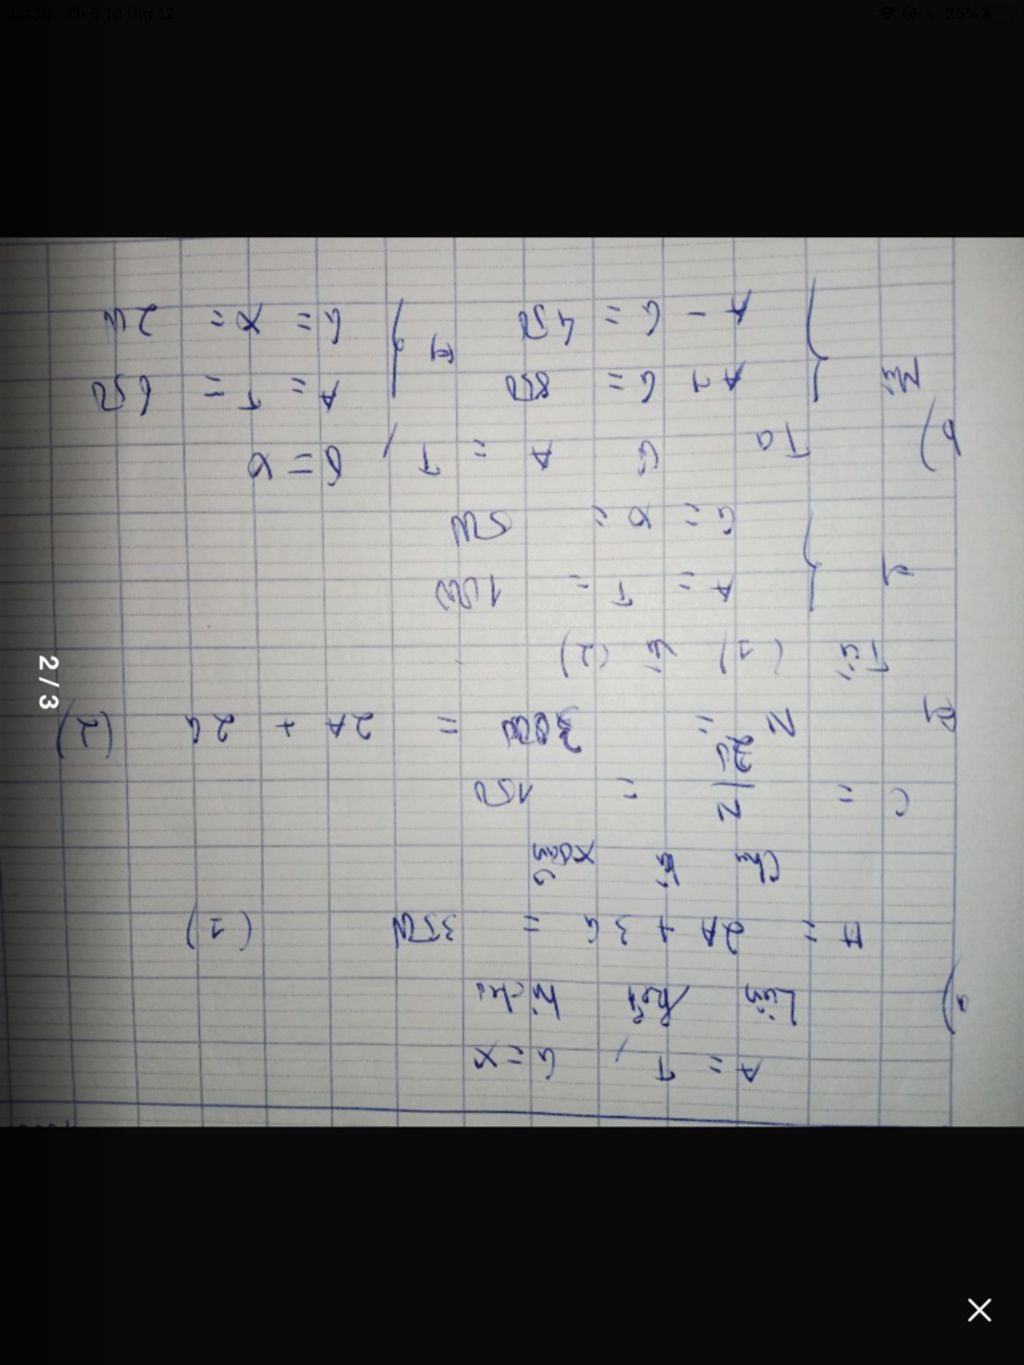 Th 5 10 thg 12
25%
A = T, G = X
a) Liên kết hiđrô
H = 2A + 3G = 3500 (1)
Chu kì xoắn
C = N/20 = 150
N = 3000 = 2A + 2G (2)
Từ (1) và (2)
A = T = 1000
G = X = 500
b) Ta có A = T, G = X
A + G = 850
A - G = 450
A = T = 650
G = X = 200
2/3